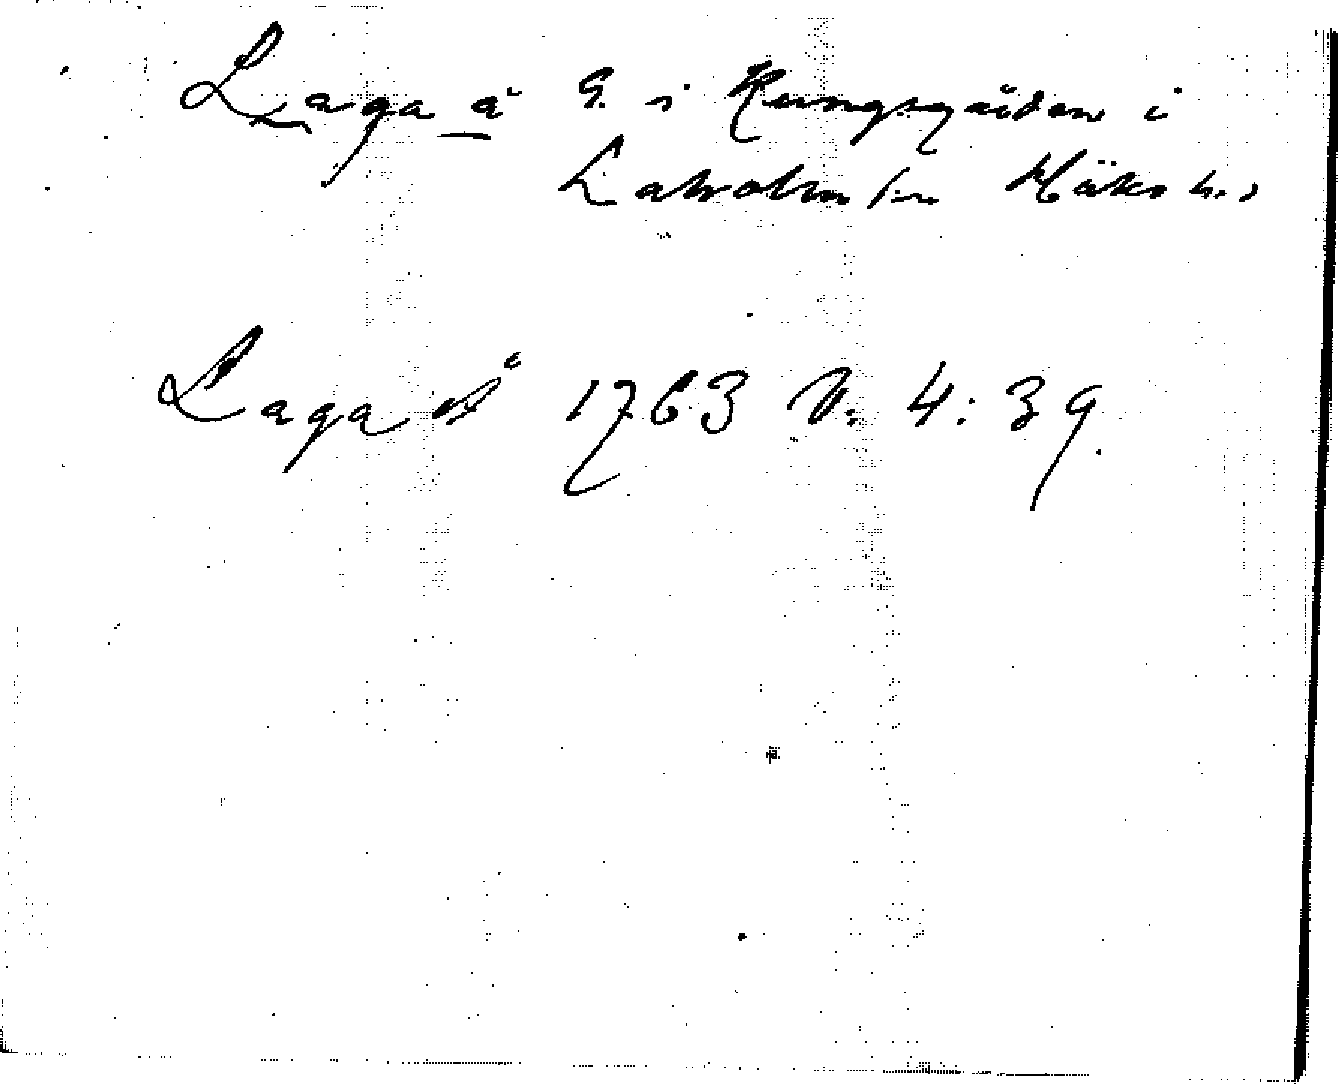 Laga å G. i Kungsgården i
Laholms sn Höks h.,
Laga Å 1763 V: 4:39.